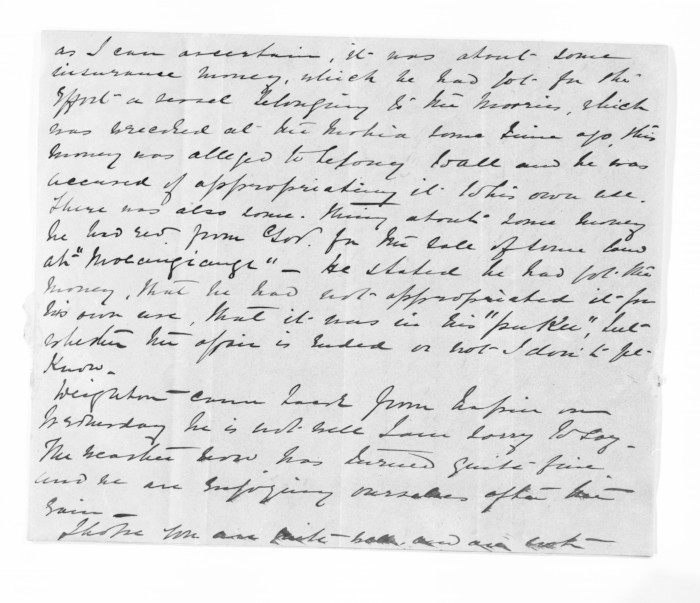 as I can ascertain, it was about some
insurance money, which he had got for the
effort a vessel belonging to the Morries, which
was wrecked at the Mohia some time ago, this
money was alleged to belong to all and he was
accused of appropriating it to his own use.
There was also some thing about some money
he had recd. from Govt. for the sale of some land
at "Moeangiangi" – He stated he had got the
money, that he had not appropriated it for
his own use, that it was in his "puket", but
whether the affair is ended or not I don't yet
know.
Deighton came back from Napier on
Wednesday he is not well I am sorry to say –
The weather now has turned quite fine
and we are enjoying ourselves after the
rain –
I hope you are quite well and are not